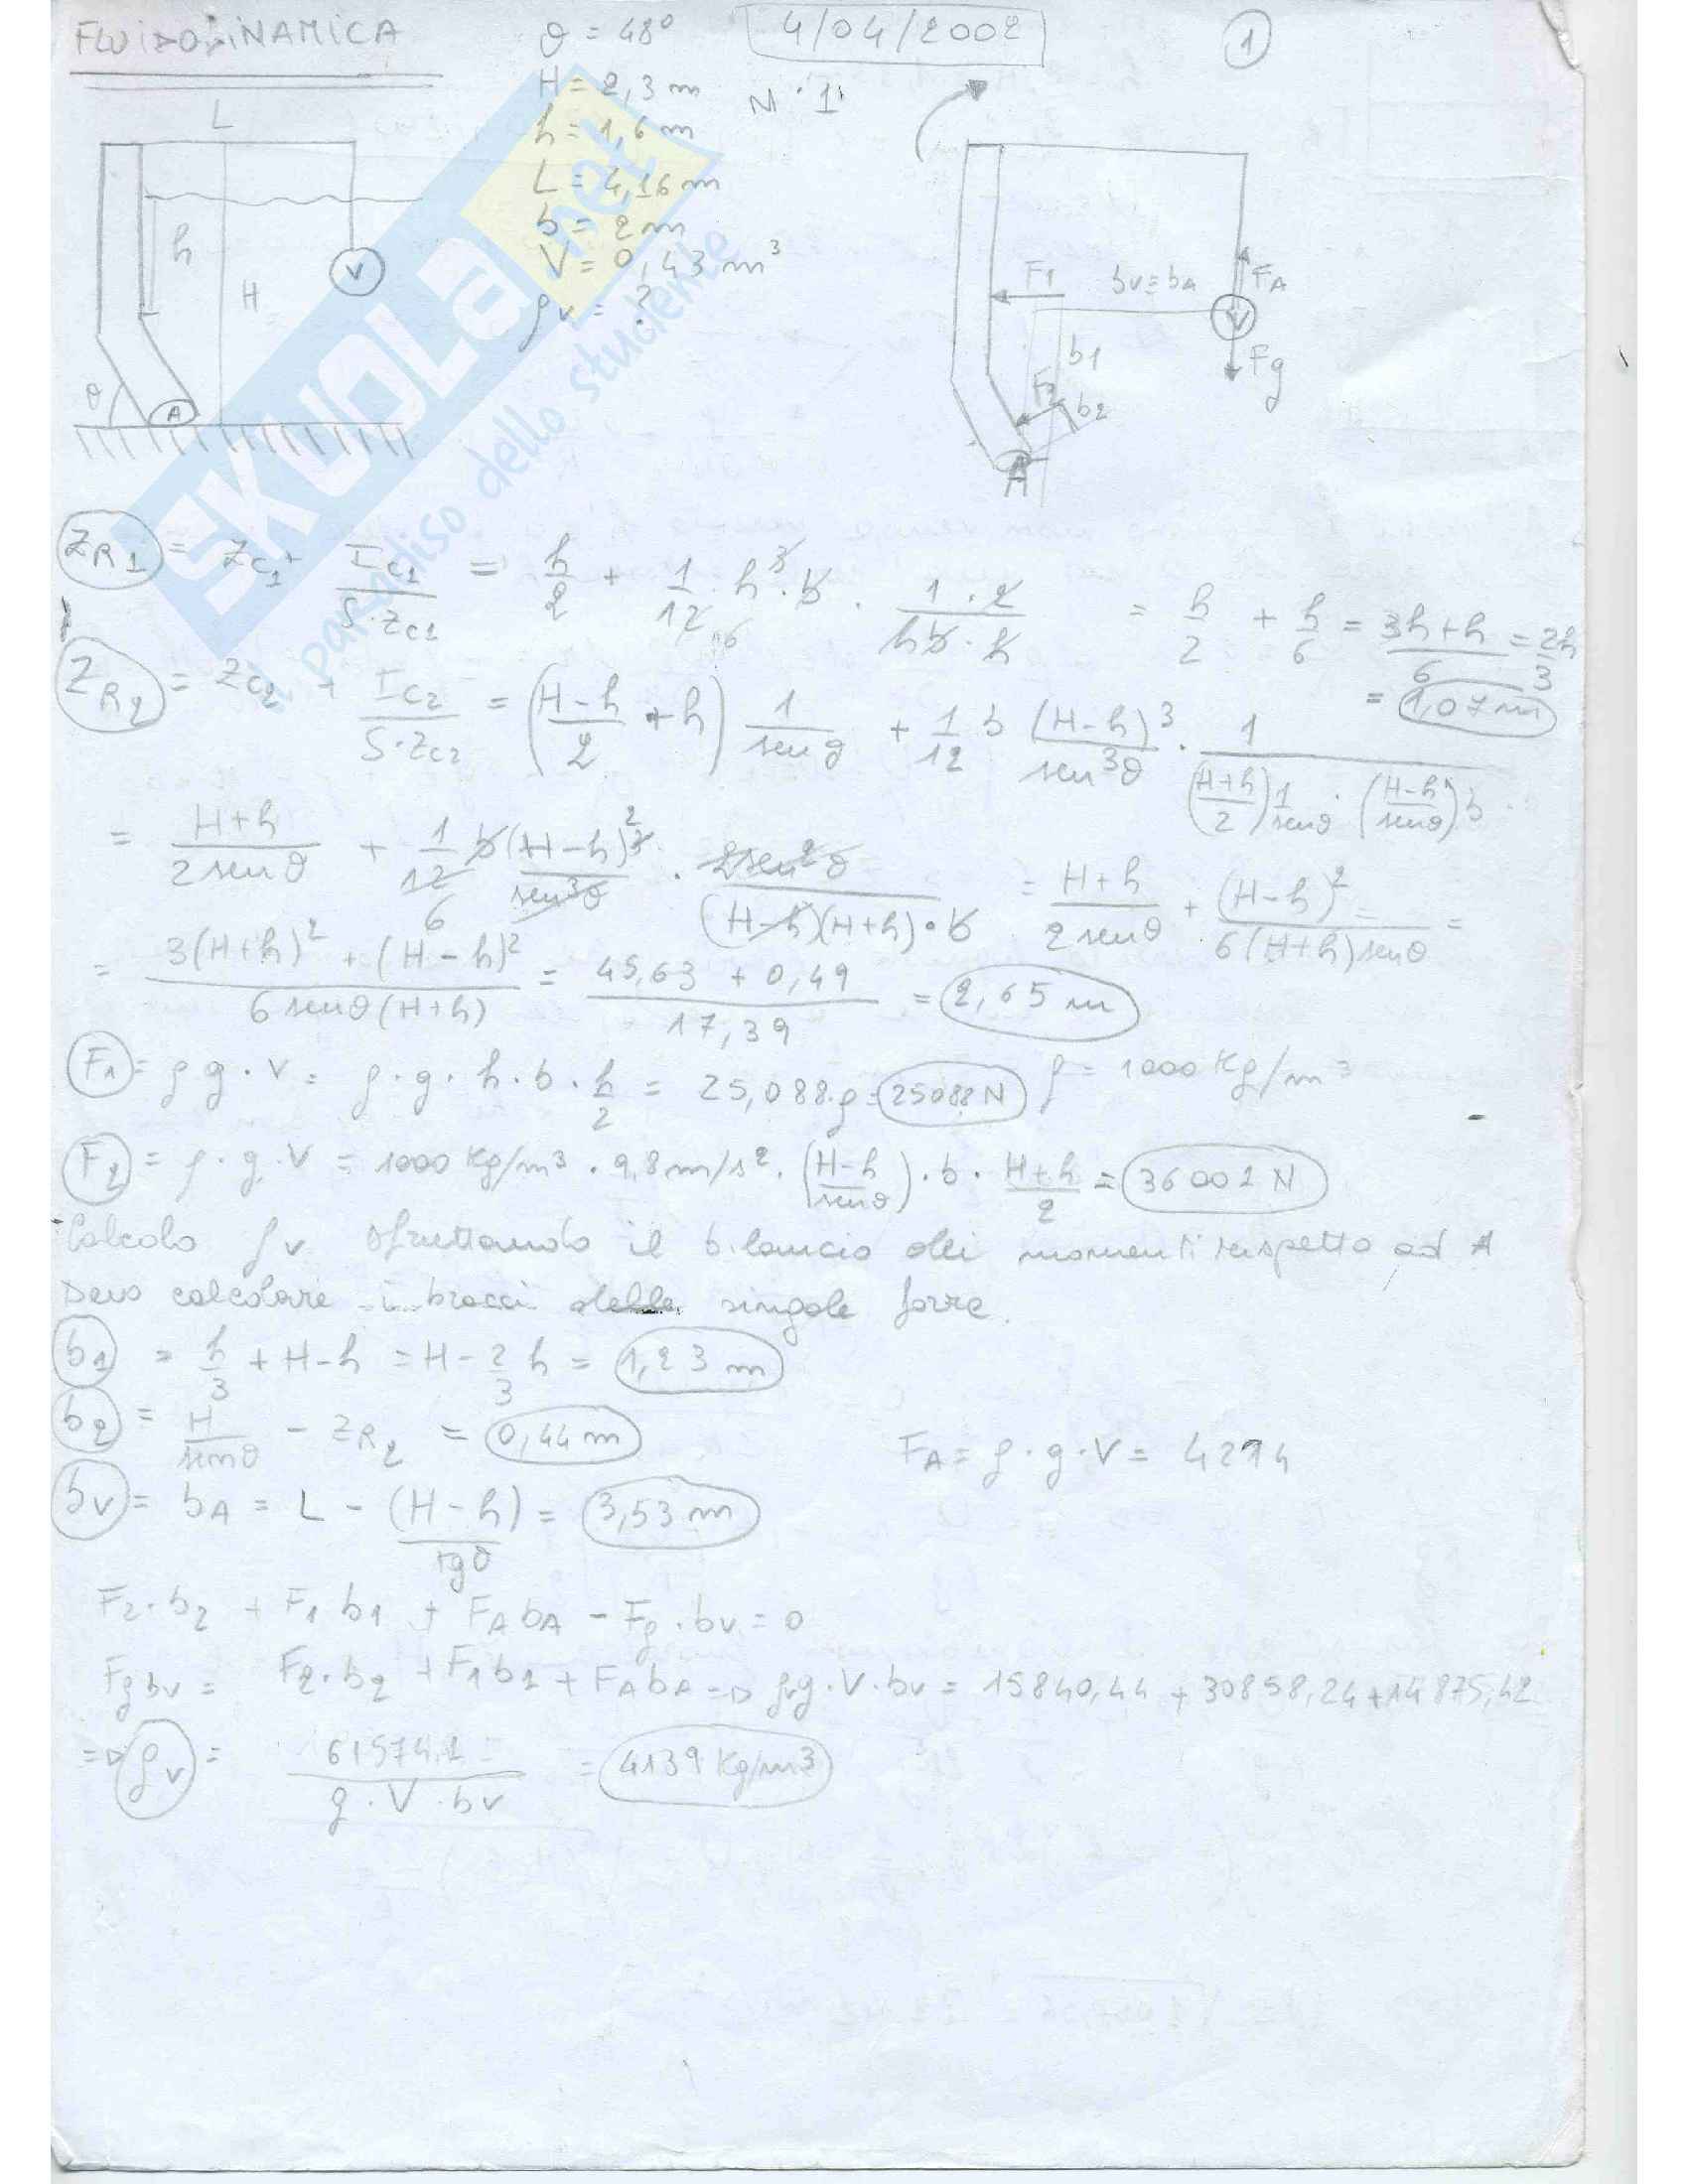 FLUIDODINAMICA
ϑ = 48°
4/04/2002
1
H = 2,3 m
N°1
h = 1,6 m
L = 4,16 m
b = 2 m
V = 0,43 m³
ρv = ?
L
h
H
V
ϑ
A
F1
bv=bA
FA
V
Fg
b1
F2
b2
A
SKUOLA.net
il paradiso dello studente
ZR1 = Zc1 + Ic1/(S·Zc1) = h/2 + 1/12 · h³·b · 1·2/(hb·h) = h/2 + h/6 = (3h+h)/6 = 2h/3
= 1,07 m
ZR2 = Zc2 + Ic2/(S·Zc2) = ((H-h)/2 + h) 1/senϑ + 1/12 b (H-h)³/sen³ϑ · 1/(((H+h)/2) 1/senϑ · ((H-h)/senϑ) b)
= (H+h)/(2senϑ) + 1/12 b(H-h)³/sen³ϑ · 2sen²ϑ/((H-h)(H+h)·b) = (H+h)/(2senϑ) + (H-h)²/(6(H+h)senϑ) =
= (3(H+h)² + (H-h)²)/(6senϑ(H+h)) = (45,63 + 0,49)/17,39 = 2,65 m
F1 = ρg·V = ρ·g·h·b·h/2 = 25,088·ρ = 25088 N ρ = 1000 Kg/m³
F2 = ρ·g·V = 1000 Kg/m³ · 9,8 m/s² · ((H-h)/senϑ)·b·(H+h)/2 = 36002 N
Calcolo ρv sfruttando il bilancio dei momenti rispetto ad A
Devo calcolare i bracci delle singole forze.
b1 = h/3 + H-h = H - 2/3 h = 1,23 m
b2 = H/senϑ - ZR2 = 0,44 m
FA = ρ·g·V = 4214
bv = bA = L - (H-h)/tgϑ = 3,53 m
F2·b2 + F1 b1 + FA bA - Fg·bv = 0
Fg bv = F2·b2 + F1 b1 + FA bA => ρv g·V·bv = 15840,44 + 30858,24 + 14875,42
=> ρv = 61574,1/(g·V·bv) = 4139 Kg/m³